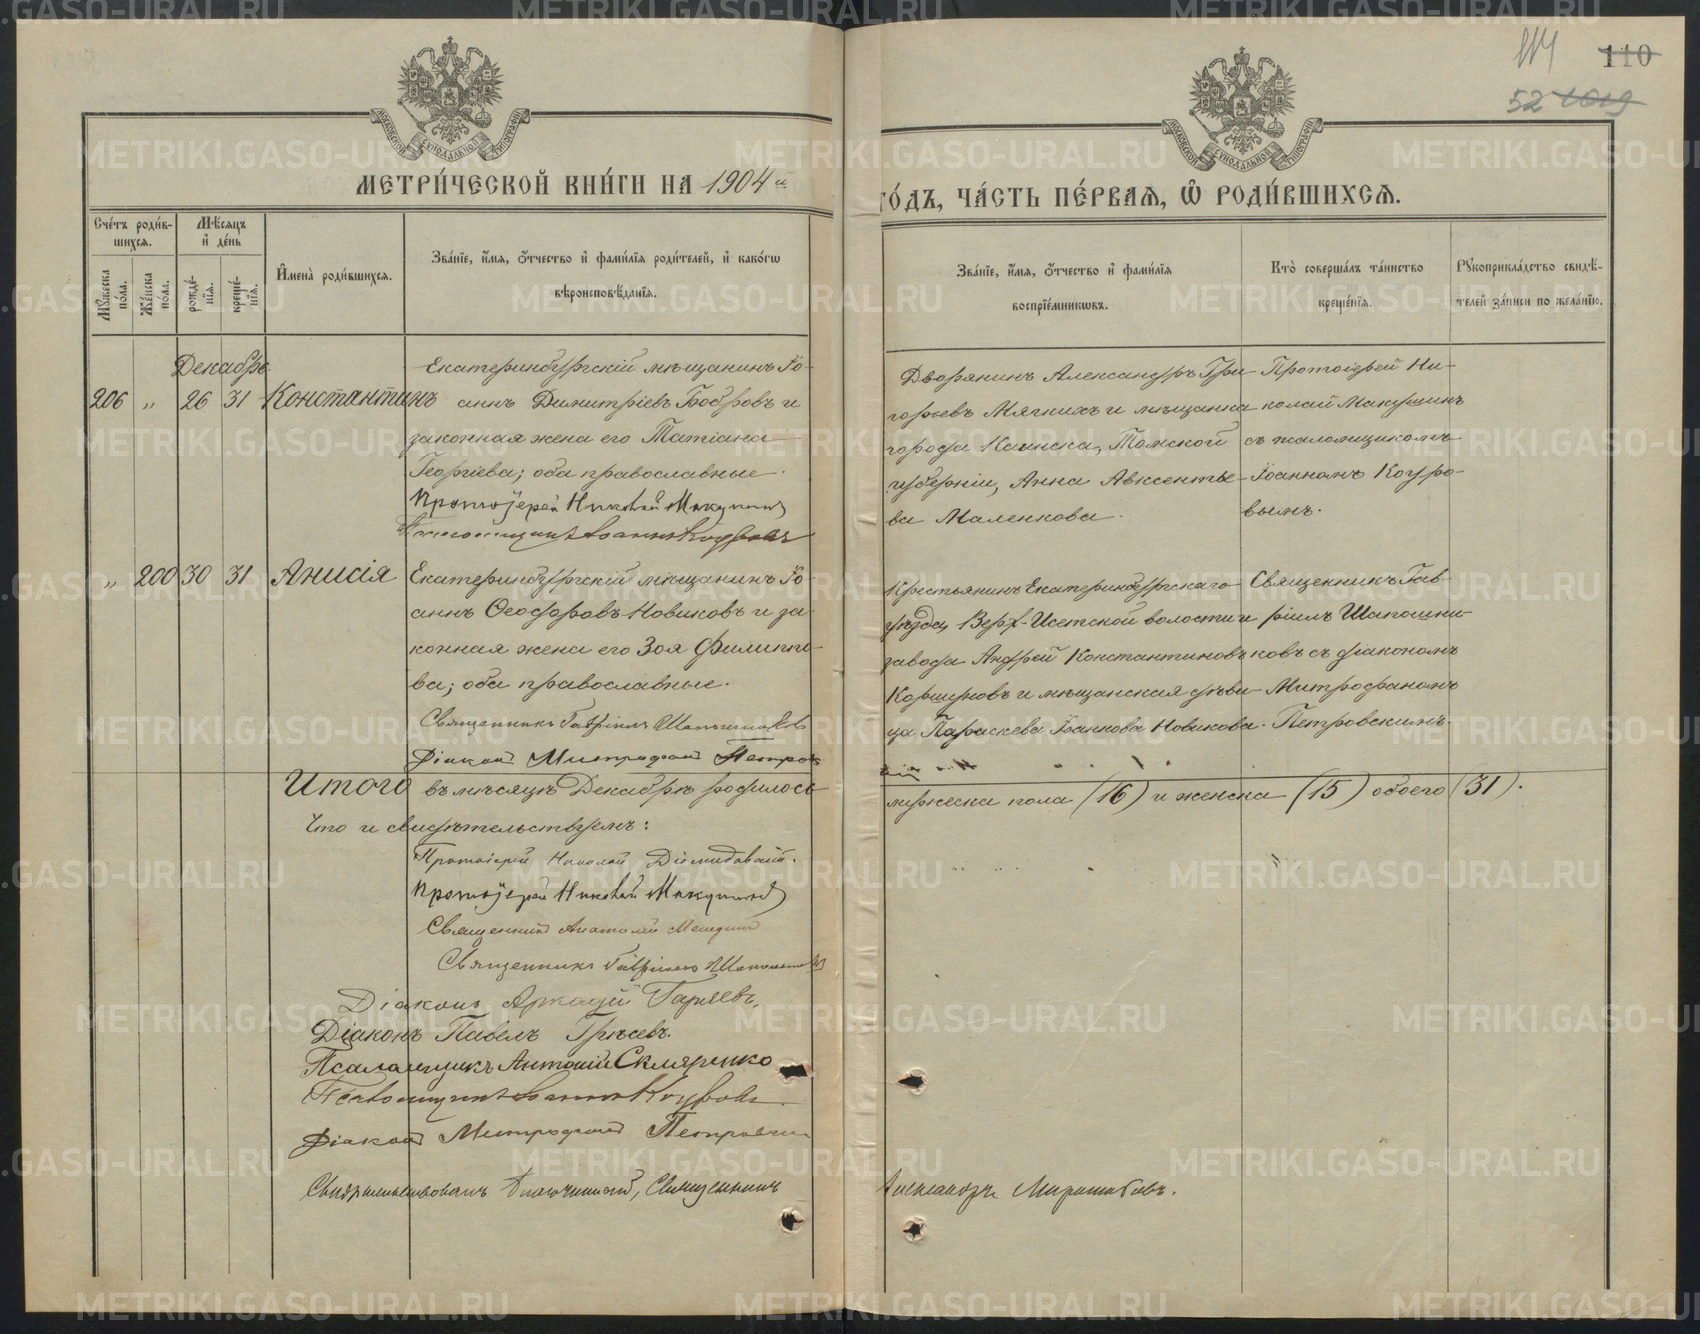 114 110
52 1019
МОСКОВСКОЙ СѴНОДАЛЬНОЙ ТИПОГРАФІИ
МОСКОВСКОЙ СѴНОДАЛЬНОЙ ТИПОГРАФІИ
МЕТРИ́ЧЕСКОЙ КНИ́ГИ НА 1904й
ГО́ДЪ, ЧА́СТЬ ПЕ́РВАѦ, Ѡ҆ РОДИ́ВШИХСѦ.
Сче́тъ роди́в-
шихсѧ.
Мѣ́сѧцъ
и҆ де́нь
Мꙋ́жеска по́ла.
Же́нска по́ла.
рожде́-
нїѧ.
креще́-
нїѧ.
И҆мена̀ роди́вшихсѧ.
Зва́нїе, и҆́мѧ, ѻ҆́тчество и҆ фами́лїѧ роди́телей, и҆ како́гѡ
вѣроисповѣ́данїѧ.
Зва́нїе, и҆́мѧ, ѻ҆́тчество и҆ фами́лїѧ
воспрїе́мникѡвъ.
Кто̀ соверша́лъ та́инство
креще́нїѧ.
Рꙋкоприкла́дство свидѣ́-
телей за́писи по жела́нїю.
Декабрь
206 „ 26 31 Константинъ
Екатеринбургскій мѣщанинъ Іо-
аннъ Димитріевъ Бобровъ и
законная жена его Татіана
Георгіева; оба православные.
Протоіерей Николай Макушинъ
Псаломщикъ Іоаннъ Кодровъ
Дворянинъ Александръ Гри-
горьевъ Мягкихъ и мѣщанка
города Каинска, Томской
губерніи, Анна Авксентье-
ва Маленкова.
Протоіерей Ни-
колай Макушинъ
съ псаломщикомъ
Іоанномъ Кодро-
вымъ.
„ 200 30 31 Анисія
Екатеринбургскій мѣщанинъ Іо-
аннъ Ѳеодоровъ Новиковъ и за-
конная жена его Зоя Филиппо-
ва; оба православные.
Священникъ Гавріилъ Шапошниковъ
Діаконъ Митрофанъ Петров-
скій
Крестьянинъ Екатеринбургскаго
уѣзда, Верх-Исетской волости и
завода Андрей Константиновъ
Коршуновъ и мѣщанская дѣви-
ца Параскева Іоаннова Новикова.
Священникъ Гав-
ріилъ Шапошни-
ковъ съ діакономъ
Митрофаномъ
Петровскимъ.
Итого въ мѣсяцѣ Декабрѣ родилось
мужеска пола (16) и женска (15) обоего (31).
Что и свидѣтельствуемъ:
Протоіерей Николай Діомидовскій.
Протоіерей Николай Макушинъ
Священникъ Анатолій
Священникъ Гавріилъ Шапошниковъ
Діаконъ Аркадій Гаряевъ.
Діаконъ Павелъ
Псаломщикъ Антоній Скляренко
Псаломщикъ Іоаннъ Кодровъ.
Діаконъ Митрофанъ Петровскій
Свидѣтельствовалъ Благочинный, Священникъ
Александръ Миролюбовъ.
METRIKI.GASO-URAL.RU